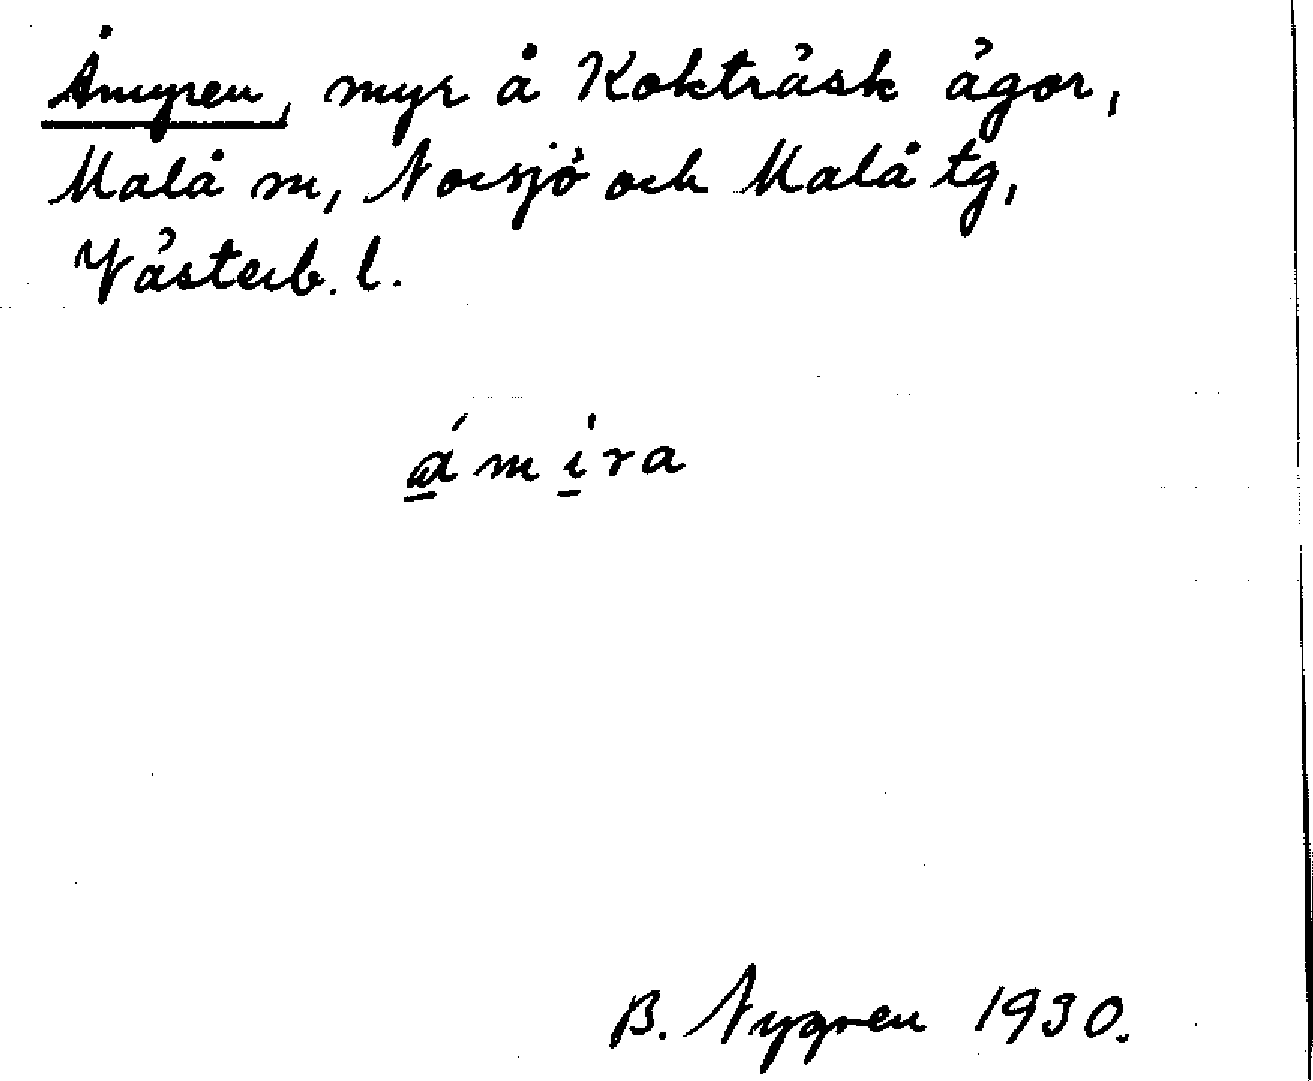 Åmyren, myr å Kokträsk ägor,
Malå sn, Norsjö och Malå tg,
Västerb. l.
ámi̱ra
B. Nygren 1930.